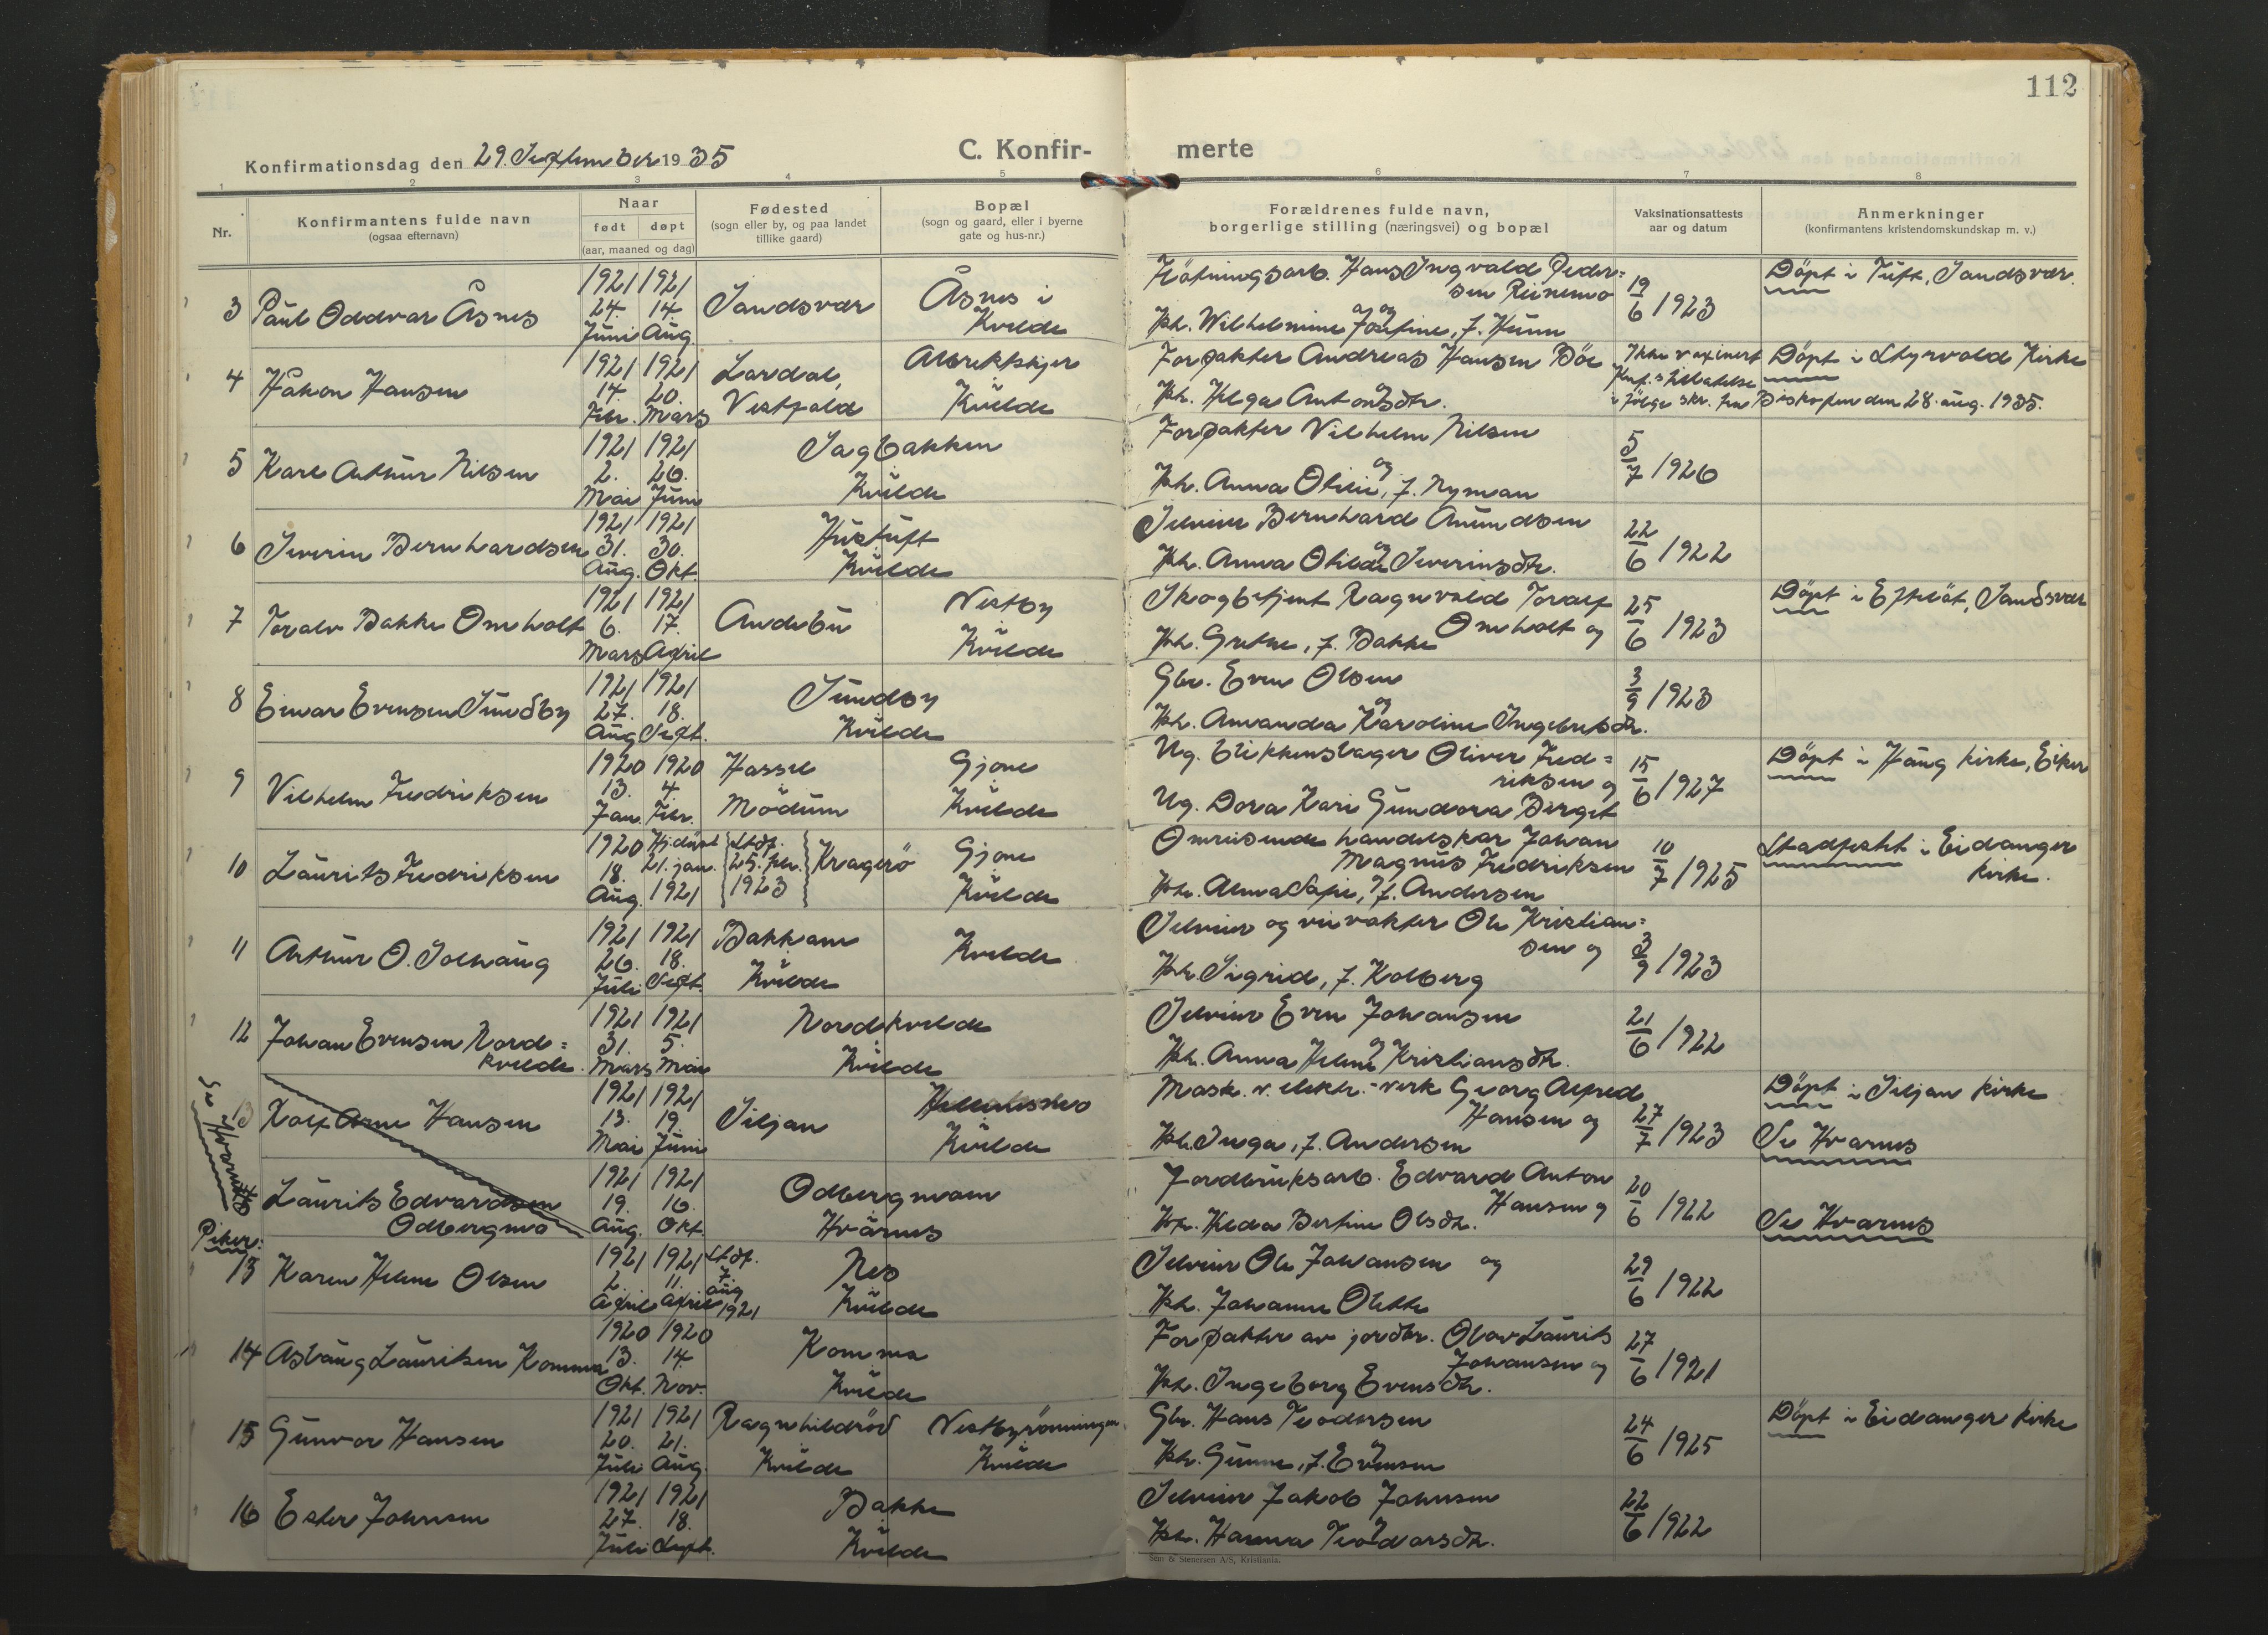 112
Konfirmationsdag den 29. September 1935
C. Konfir- merte
1 2 3 4 5 6 7 8
Nr.
Konfirmantens fulde navn
(ogsaa efternavn)
Naar
født døpt
(aar, maaned og dag)
Fødested
(sogn eller by, og paa landet
tillike gaard)
Bopæl
(sogn og gaard, eller i byerne
gate og hus-nr.)
Forældrenes fulde navn,
borgerlige stilling (næringsvei) og bopæl
Vaksinationsattests
aar og datum
Anmerkninger
(konfirmantens kristendomskundskap m. v.)
3 Paul Oddvar Åsnes
1921 24. Juni
1921 14. Aug.
Sandsvær
Åsnes i
Kvelde
Fløtningsarb. Hans Ingvald Peder=
sen Reinemo og
Hh. Wilhelmine Josefine, f. Huun
19/6 1923
Döpt i Tuft, Sandsvær.
4 Håkon Hansen
1921 14. Febr.
1921 20. Mars
Lardal,
Vestfold
Kvelde
Forpakter Andreas Hansen Böe
og
Hh. Helga Antonsdtr.
Ikke vaxinert
Konf. s tillatelse
i følge skr. fra Biskopen den 28. aug. 1935.
Döpt i Styrvold Kirke
5 Karl Arthur Nilsen
1921 2. Mai
1921 26. Juni
Sagbakken
Kvelde
Forpakter Vilhelm Nilsen
og
Hh. Anna Otilie, f. Nyman
5/7 1926
6 Severin Bernhardsen
1921 31. Aug.
1921 30. Okt.
Hustuft
Kvelde
Selveier Bernhard Amundsen
og
Hh. Anna Otilde Severinsdtr.
22/6 1922
7 Toralv Bakke Omholt
1921 6. Mars
1921 17. April
Andebu
Vestby
Kvelde
Skogbetjent Ragnvald Toralf
Omholt og
Hh. Grethe, f. Bakke
25/6 1923
Döpt i Efteløt, Sandsvær
8 Einar Evensen Sundby
1921 27. Aug.
1921 18. Sept.
Sundby
Kvelde
Gbr. Even Olsen
og
Hh. Amanda Karoline Ingebretsdtr.
3/9 1923
9 Vilhelm Fredriksen
1920 13. Jan.
1920 4. Febr.
Hassel
Modum
Gjone
Kvelde
Ug. blikkenslager Oliver Fred=
riksen og
Ug. Dora Kari Gundora Berget
15/6 1927
Döpt i Haug kirke, Eiker
10 Laurits Fredriksen
1920 18. Aug.
Hj.döpt 21. jan. 1921
Stdf. 25. febr. 1923
Kragerö
Gjone
Kvelde
Omreisende handelskar Johan
Magnus Fredriksen
og
Hh. Alma Sofie, f. Andersen
10/7 1925
Stadfestet i Eidanger
kirke.
11 Arthur O. Solhaug
1921 26. Juli
1921 18. Sept.
Bakkane
Kvelde
Kvelde
Selveier og veivokter Ole Kristian=
sen og
Hh. Sigrid, f. Kolberg
3/9 1923
12 Johan Evensen Nord=
kvelde.
1921 31. Mars
1921 5. Mai
Nordkvelde
Kvelde
Selveier Even Johansen
og
Hh. Anna Helene Kristiansdtr.
21/6 1922
Se Hvarnes
13 Rolf Arne Hansen
1921 13. Mai
1921 19. Juni
Siljan
Kvelde
Mask. v. elektr.-verk Georg Alfred
Hansen og
Hh. Inga, f. Andersen
27/7 1923
Döpt i Siljan kirke
Se Hvarnes
Laurits Edvardsen
Odbergmo
1921 19. Aug.
1921 16. Okt.
Odbergmoen
Hvarnes
Jordbruksarb. Edvard Anton
Hansen og
Hh. Hilda Bertine Olsdtr.
20/6 1922
Se Hvarnes
Piker:
13 Karen Helene Olsen
1921 2. April
1921 11. April
Stdf. 7. aug 1921
Nes
Kvelde
Selveier Ole Johansen og
Hh. Johanne Olette
29/6 1922
14 Aslaug Lauritsen Komma
1920 13. Okt.
1920 14. Nov.
Komma
Kvelde
Forpakter av jordbr. Olav Laurits
Johansen og
Hh. Ingeborg Evensdtr.
27/6 1921
15 Gunvor Hansen
1921 20. Juli
1921 21. Aug.
Ragnhildröd
Kvelde
Vestbyrönningen
Kvelde
Gbr. Hans Teodorsen
og
Hh. Gunne, f. Evensen
24/6 1925
Döpt i Eidanger kirke
16 Ester Johnsen
1921 27. Juli
1921 18. Sept.
Bakke
Kvelde
Selveier Jakob Johnsen
og
Hh. Hanna Teodorsdtr.
22/6 1922
Sem & Stenersen A/S, Kristiania.